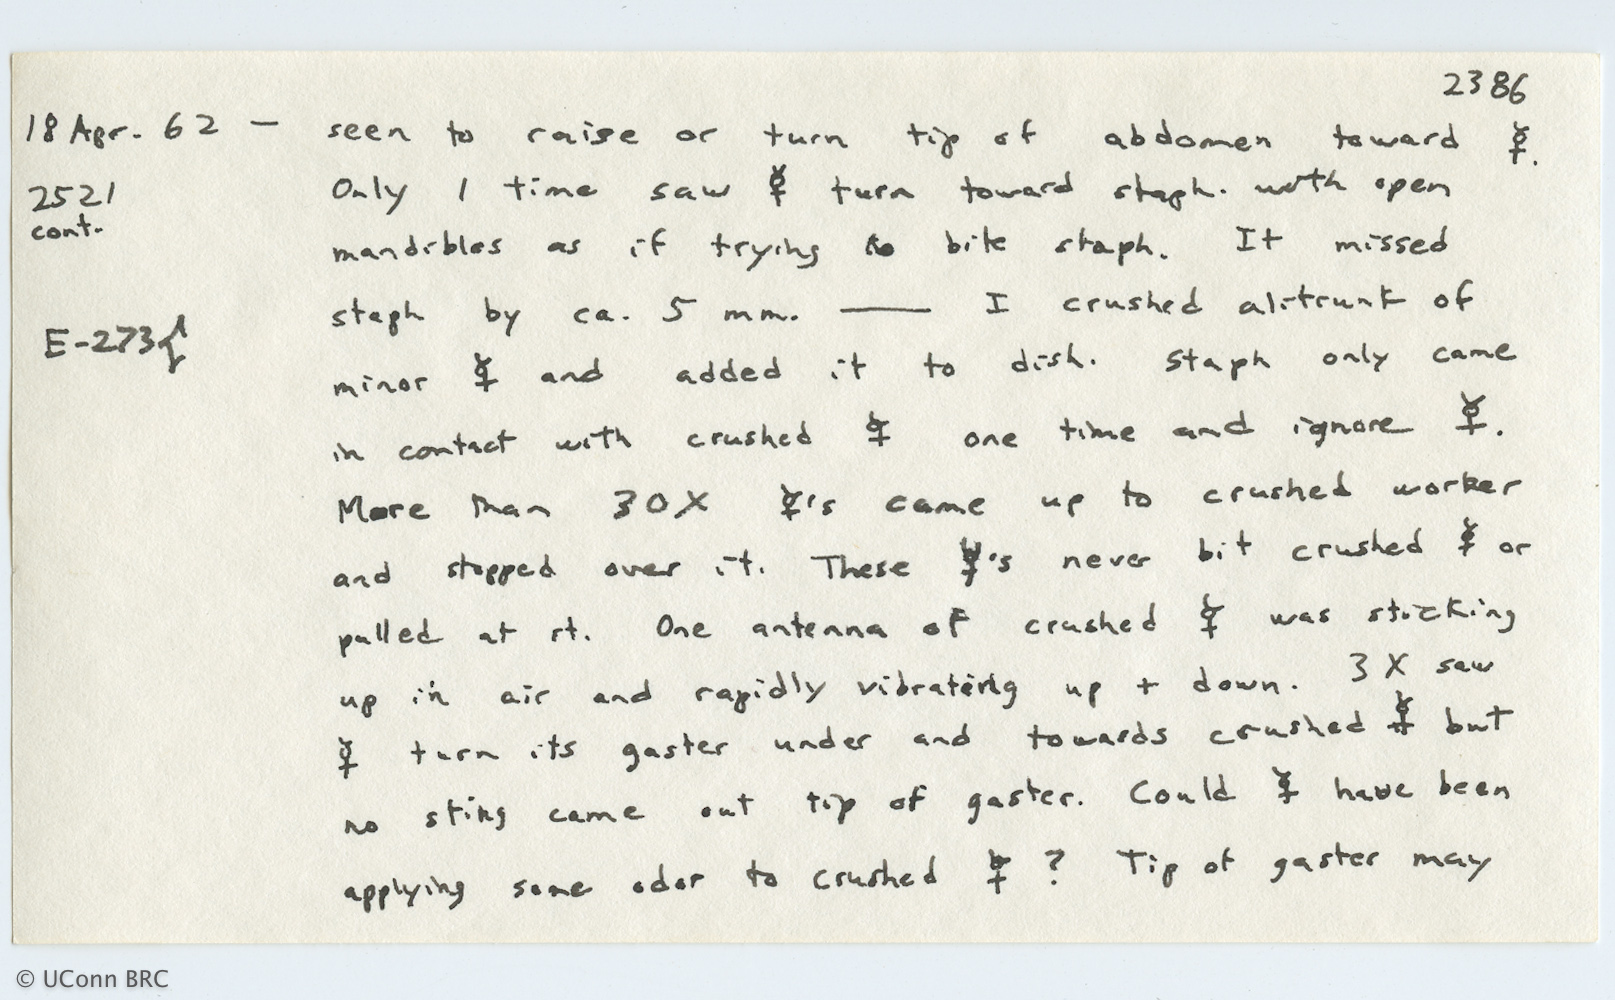 2386
18 Apr. 62 — seen to raise or turn tip of abdomen toward ☿.
2521 Only 1 time saw ☿ turn toward staph. with open
cont. mandibles as if trying to bite staph. It missed
staph by ca. 5 mm. —— I crushed alitrunk of
E-273
minor ☿ and added it to dish. Staph only came
in contact with crushed ☿ one time and ignore ☿.
More than 30X ☿'s came up to crushed worker
and stopped over it. These ☿'s never bit crushed ☿ or
pulled at it. One antenna of crushed ☿ was sticking
up in air and rapidly vibrating up + down. 3X saw
☿ turn its gaster under and towards crushed ☿ but
no sting came out tip of gaster. Could ☿ have been
applying some odor to crushed ☿? Tip of gaster may
© UConn BRC